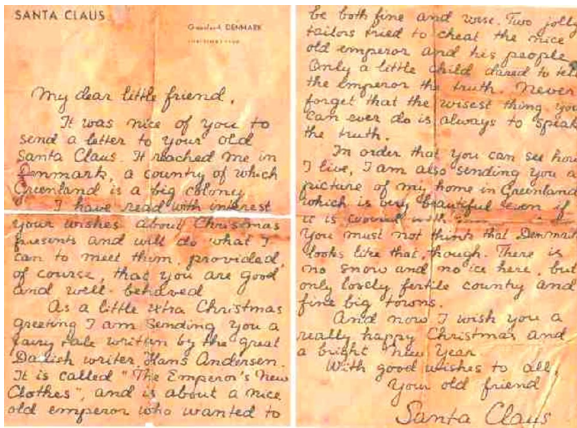 SANTA CLAUS
Greenland, DENMARK
My dear little friend,
It was nice of you to
send a letter to your old
Santa Claus. It reached me in
Denmark, a country of which
Greenland is a big colony.
I have read with interest
your wishes about Christmas
presents and will do what I
can to meet them, provided,
of course, that you are good
and well-behaved
As a little Christmas
greeting I am sending you a
fairy tale written by the great
Danish writer Hans Andersen.
It is called "The Emperor's New
Clothes", and is about a nice
old emperor who wanted to
be both fine and wise. Two jolly
tailors tried to cheat the nice
old emperor and his people.
Only a little child dared to tell
the emperor the truth. Never
forget that the wisest thing you
can ever do is always to speak
the truth.
In order that you can see how
I live, I am also sending you a
picture of my home in Greenland
which is very beautiful even if
it is
You must not think that Denmark
looks like that, though. There is
no snow and no ice here, but
only lovely fertile country and
fine big towns.
And now I wish you a
really happy Christmas and
a bright New Year
With good wishes to all,
Your old friend
Santa Claus